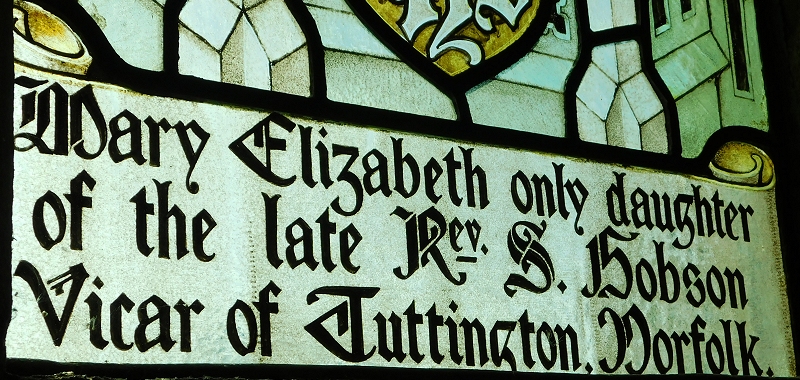 Mary Elizabeth only daughter
of the late Rev. S. Hobson
Vicar of Tuttington. Norfolk.